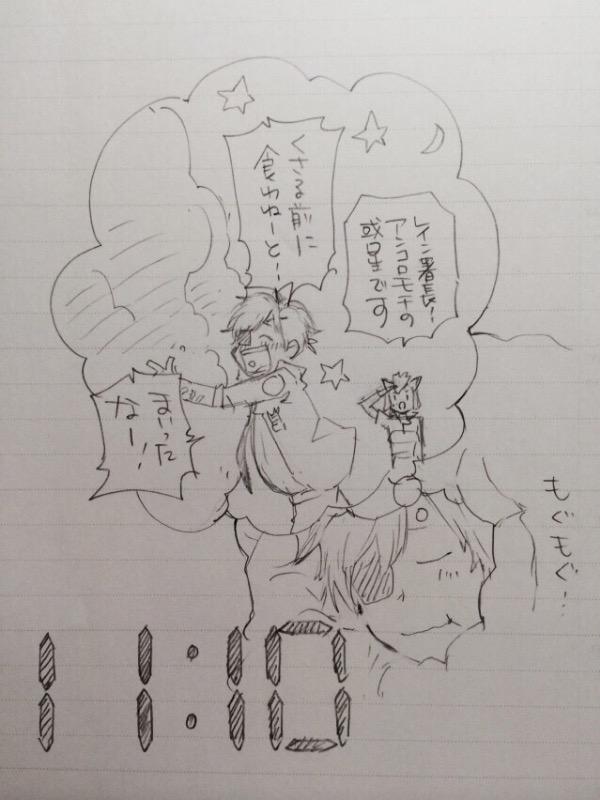 レイン署長!!
アンコロモチの
惑星です
くさる前に
食わねーと!
まいった
なー!
もぐもぐ…
11:10